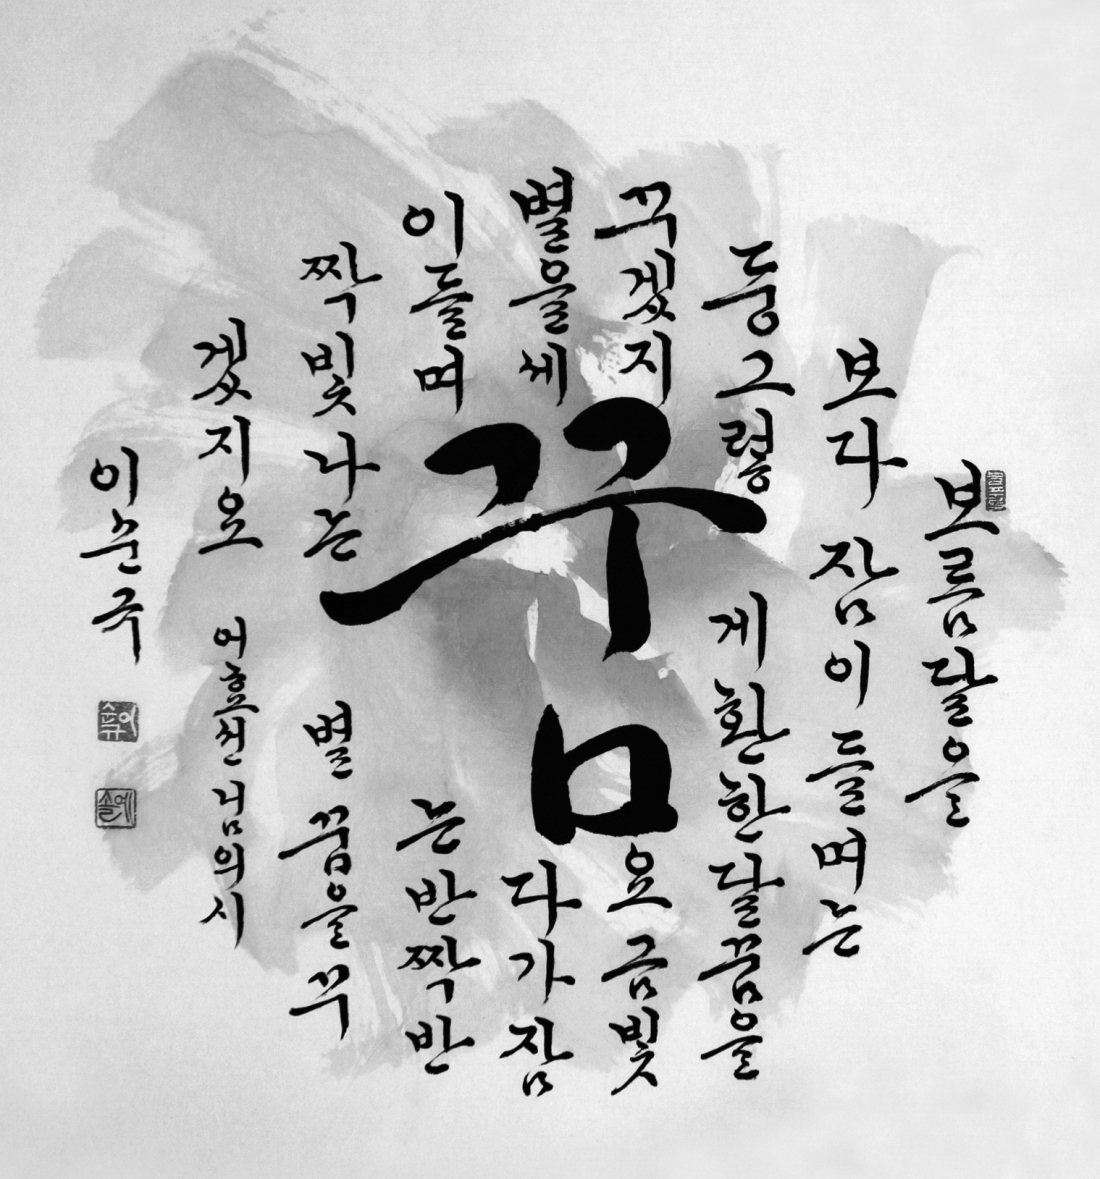 보름달을
보다 잠이들며는
둥그렇게 환한달꿈을
꾸겠지요 금빛
별을세다가 잠
이들며는 반짝반
짝빛나는 별 꿈을 꾸
겠지요 어효선님의 시
이순구
꿈
예솔